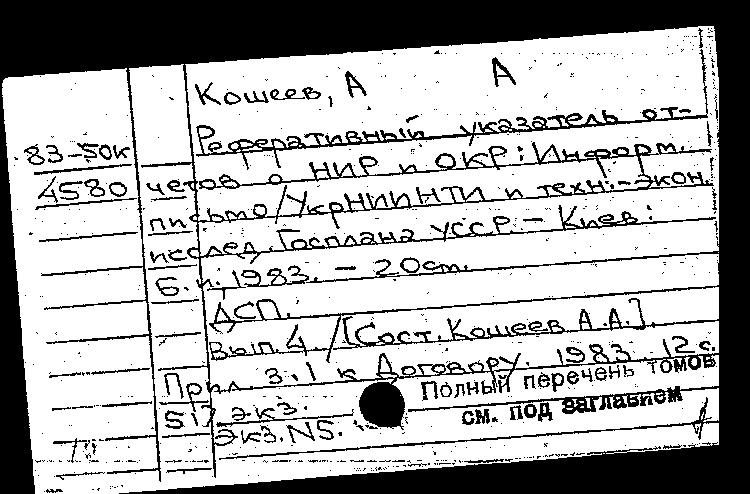 Кошеев, А А
Реферативный указатель от-
83-50к
4580
четов о НИР и ОКР: Информ.
письмо/УкрНИИНТИ и техн.-экон.
исслед. Госплана УССР. - Киев:
Б.и. 1983. - 20cm.
ДСП.
Вып. 4. /[Сост. Кошеев А.А.].
Прил. 3.1 к Договору. 1983. 12 с.
517 экз.
Экз. N5.
Полный перечень томов
см. под заглавием